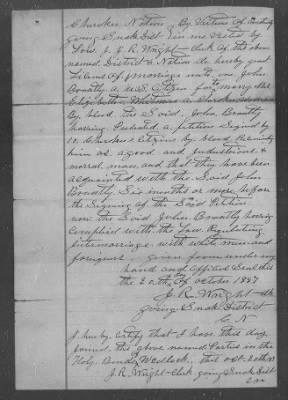 Cherokee Nation, By Virtue of Authority
going Snake Dist. in me vested by
Law. I J. R. Wright Clerk of the above
named District & Nation do hereby grant
License of Marriage unto one John
Brantly a U.S. Citizen to marry Mrs
Elizabeth a Cherokee
By blood. The Said. John. Brantly
having Presented a petition Signed by
12. Cherokee Citizens by blood
him as a good and Industrious &
morral, man, and that they have been
acquainted with the Said John
Brantly. Six months or more before
the Signing of the Said Petition
now the Said John. Brantly having
complied with the Law. Regulating
intermarriage. with white men and
foreigners. given from under my
hand and official Seal this
the 20th of October 1887
J. R. Wright Clk
going Snake District
C. N.
I hereby Certify that I have this day
joined. the above named Parties in the
Holy. Bonds Wedlock. this Oct. 20th 87
J. R. Wright Clerk going Snake Dist
C.N.